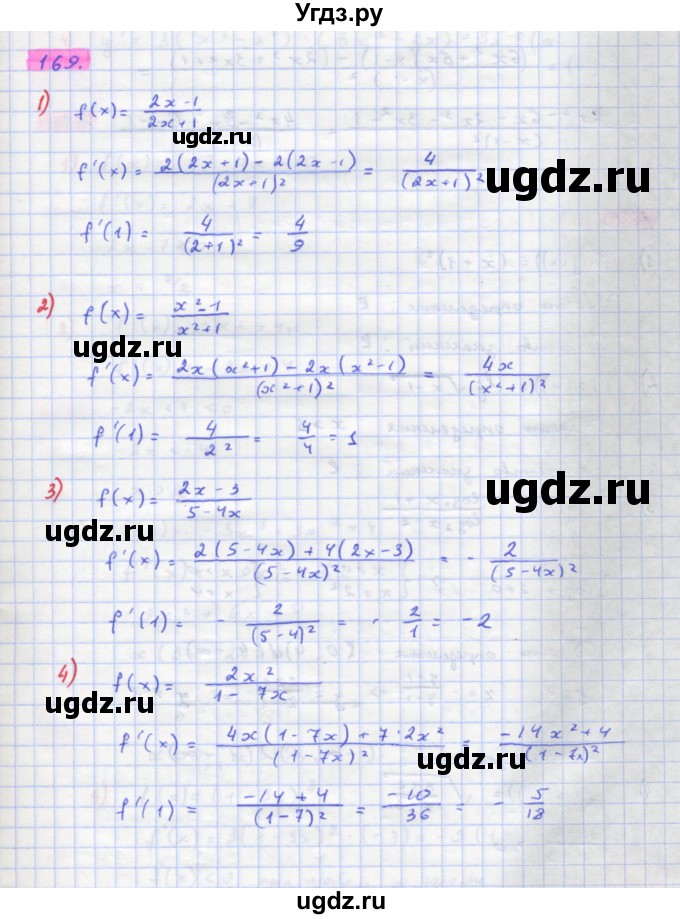 Угдз.ру
169.
1) f(x) = (2x-1)/(2x+1)
ugdz.ru
f'(x) = (2(2x+1) - 2(2x-1))/(2x+1)² = 4/(2x+1)²
ugdz.ru
ugdz.ru
f'(1) = 4/(2+1)² = 4/9
2) f(x) = (x²-1)/(x²+1)
ugdz.ru
f'(x) = (2x(x²+1) - 2x(x²-1))/(x²+1)² = 4x/(x²+1)²
f'(1) = 4/2² = 4/4 = 1
3) f(x) = (2x-3)/(5-4x)
ugdz.ru
ugdz.ru
f'(x) = (2(5-4x) + 4(2x-3))/(5-4x)² = - 2/(5-4x)²
f'(1) = - 2/(5-4)² = - 2/1 = -2
4) f(x) = 2x²/(1-7x)
ugdz.ru
ugdz.ru
f'(x) = (4x(1-7x) + 7·2x²)/(1-7x)² = (-14x²+4)/(1-7x)²
ugdz.ru
f'(1) = (-14+4)/(1-7)² = -10/36 = - 5/18
ugdz.ru
ugdz.ru